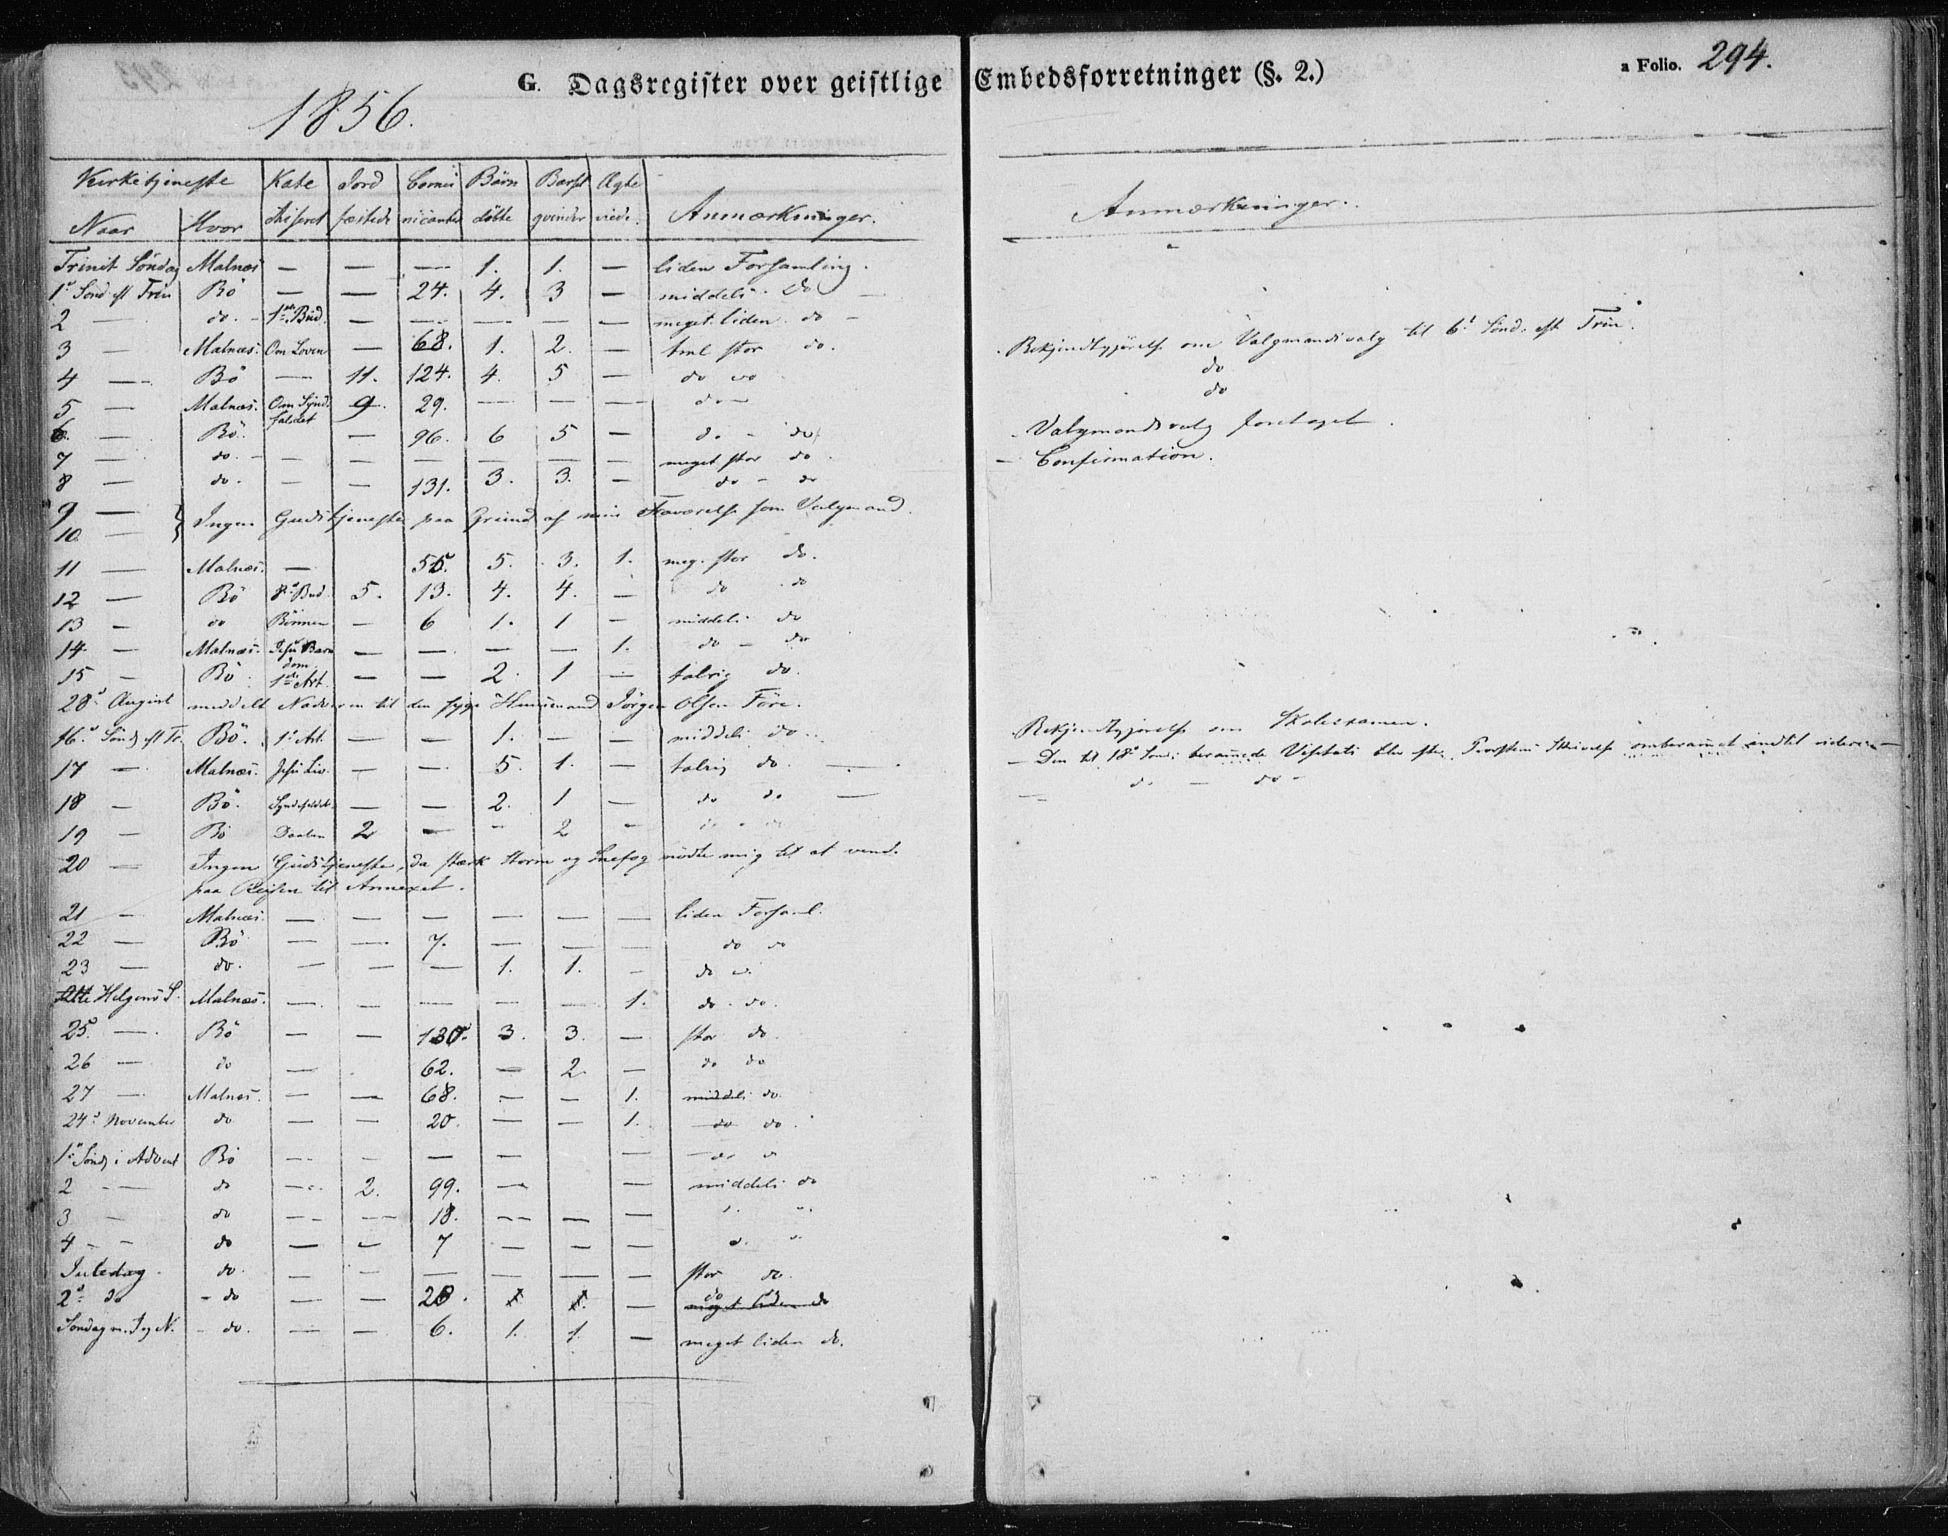 G. Dagsregister over geistlige Embedsforretninger (§. 2.)
a Folio. 294.
1856.
Kirketjeneste Kate Jord Commu Börn Barsel Ægte
Naar Hvor chiseret fæstede nicanter döbte qvinder viede. Anmærkninger. Anmærkninger.
Trinit Söndag Malnæs — — — 1. 1. — liden Forsamling.
1ste Sönd. eft Trin Bö — — 24. 4. 3 — middels do —
2 — do. — 1ste Bud. — — — — — meget liden do —
3 — Malnæs. Om Loven — 68. 1. 2. — tml stor do. Bekjendtgjörelse om Valgmandsvalg til 6te Sönd. eft Trin.
4 — Bö — 11. 124. 4. 5 — do do do
5 — Malnæs. Om Synd. 9. 29. — — — do — do
faldet
6. — Bö. — 96. 6 5 — do - do Valgmandsvalg foretaget.
7 — do. — — — — — — — meget stor do. — Confirmation.
8 — do. — — 131. 3. 3. — do - do
9 — } Ingen Gudstjeneste paa Grund af min Fraværelse som Valgmand.
10 —
11 — Malnæs. — 55. 5. 3. 1. meg. stor do.
12 — Bö 8de Bud. 5. 13. 4. 4. — do do
13 — do Bönnen — 6 1. 1 — middels do
14. — Malnæs. Jesu Barn — — — — 1. do — do
dom.
15 — Bö. 1ste Art. — — 2. 1 — talrig do.
28de August meddelt Nadveren til den syge Huusmand Jörgen Olsen Före.
16de Sönd eft Tr. Bö. 1ste Art. — — 1. — — middels do. Bekjendtgjörelse om Skoleexamen.
17 — Malnæs. Jesu Liv. — — 5. 1. — talrig do. — — Den til 18de Sönd. berammede Visitats blev efter Provstens Skrivelse omberammet indtil videre. —
18 — Bö. Syndefaldet — — 2. 1 — do do — — do — do —
19 — Bö Daaben 2 — — 2 — do - do
20 — Ingen Gudstjeneste, da stærk Storm og Snefog nödte mig til at vende
paa Reisen til Annexet.
21 — Malnæs. — — — — — — liden Forsaml.
22 — Bö — — 7. — — — do do
23 — do. — — — 1. 1. — do do
Alle Helgens S. Malnæs. — — — — — 1. do. do.
25. — Bö — — 130. 3. 3. — stor do.
26 — do — 62. — 2. — do do
27 — Malnæs. — — 68. — — 1. middels do.
24de November do — — 20. — — 1. do do.
1ste Sönd i Advent Bö — — — — — — do do
2 — do — 2. 99. — — middels do
3 — do — — 18. — — — " "
4 — — do — — 7 — — — do. "
Juledag. do. — — — — — — stor do.
2den do - do — — 28. 1 1. — do do
meget liden do
Söndag m. J og N. - do. — — 6. 1. 1. — meget liden do.